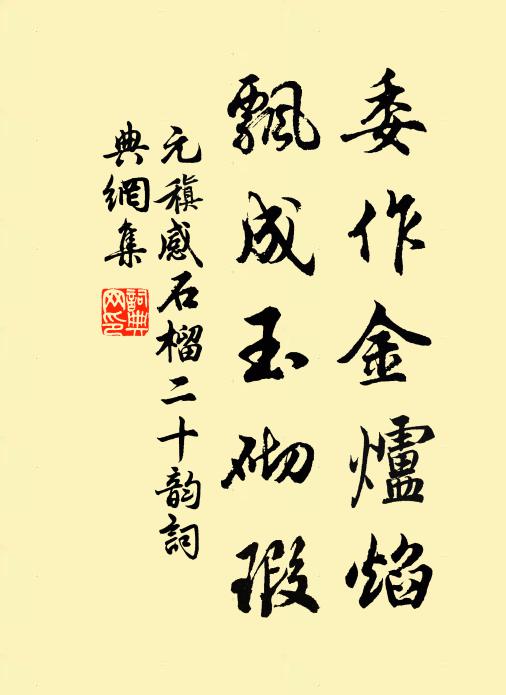 委作金爐焰
飄成玉砌瑕
元稹感石榴二十韵詞
典網集
詞典
网印